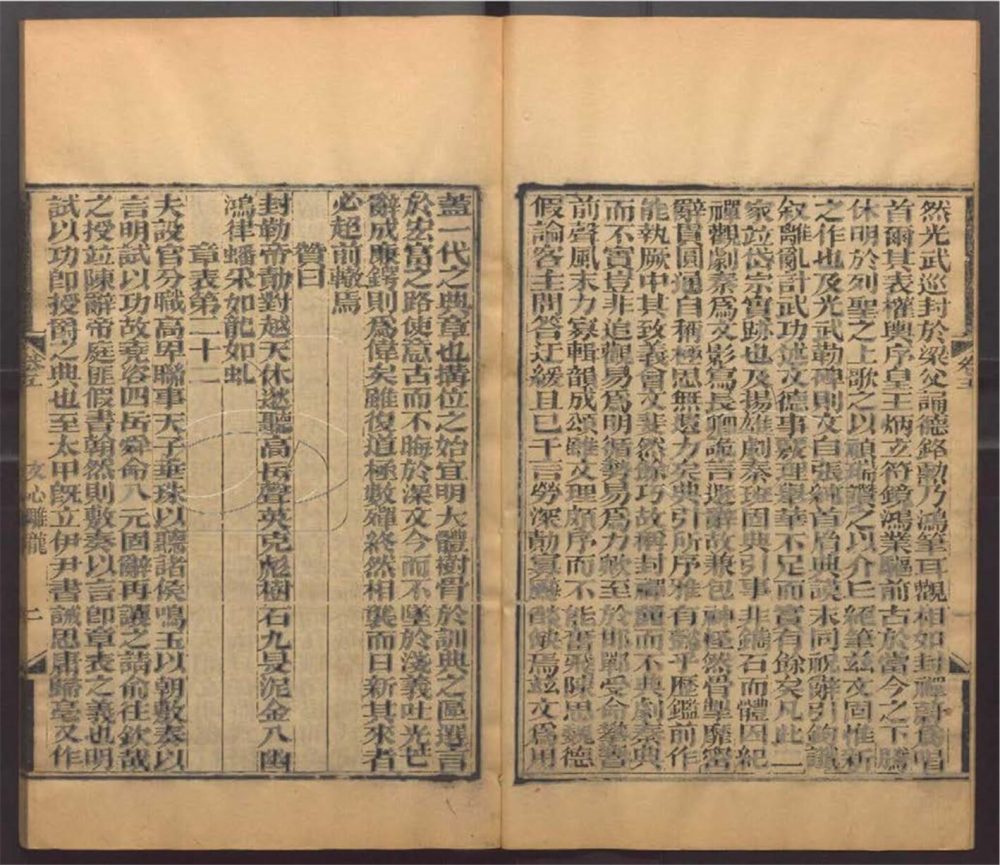 然光武巡封於梁父誦德銘勳乃鴻筆耳觀相如封禪蔚爲唱
首爾其表權輿序皇王炳玄符鏡鴻業驅前古於當今之下騰
休明於列聖之上歌之以禎瑞讚之以介丘絕筆茲文固惟新
之作也及光武勒碑則文自張純首胤典謨末同祝辭引鉤讖
叙離亂計武功述文德事覈理舉華不足而實有餘矣凡此二
家竝岱宗實跡也及揚雄劇秦班固典引事非鐫石而體因紀
禪觀劇秦爲文影寫長卿詭言遯辭故兼包神怪然骨掣靡密
辭貫圓通自稱極思無遺力矣典引所序雅有懿乎歷鑑前作
能執厥中其致義會文斐然餘巧故稱封禪麗而不典劇秦典
而不實豈非追觀易爲明循勢易爲力歟至於邯鄲受命攀響
前聲風末力寡輯韻成頌雖文理頗序而不能奮飛陳思魏德
假論客主問荅迂緩且已千言勞深勣寡飈燄缺焉茲文爲用
蓋一代之典章也搆位之始宜明大體樹骨於訓典之區選言
於宏富之路使意古而不晦於深文今而不墜於淺義吐光芒
辭成廉鍔則爲偉矣雖復道極數殫終然相襲而日新其來者
必超前轍焉
贊曰
封勒帝勣對越天休逖聽高岳聲英克彪樹石九旻泥金八幽
鴻律蟠采如龍如虬
章表第二十二
夫設官分職高卑聯事天子垂珠以聽諸侯鳴玉以朝敷奏以
言明試以功故堯咨四岳舜命八元固辭再讓之請俞往欽哉
之授竝陳辭帝庭匪假書翰然則敷奏以言即章表之義也明
試以功即授爵之典也至太甲旣立伊尹書誡思庸歸亳又作
卷五
文心雕龍
二
卷五